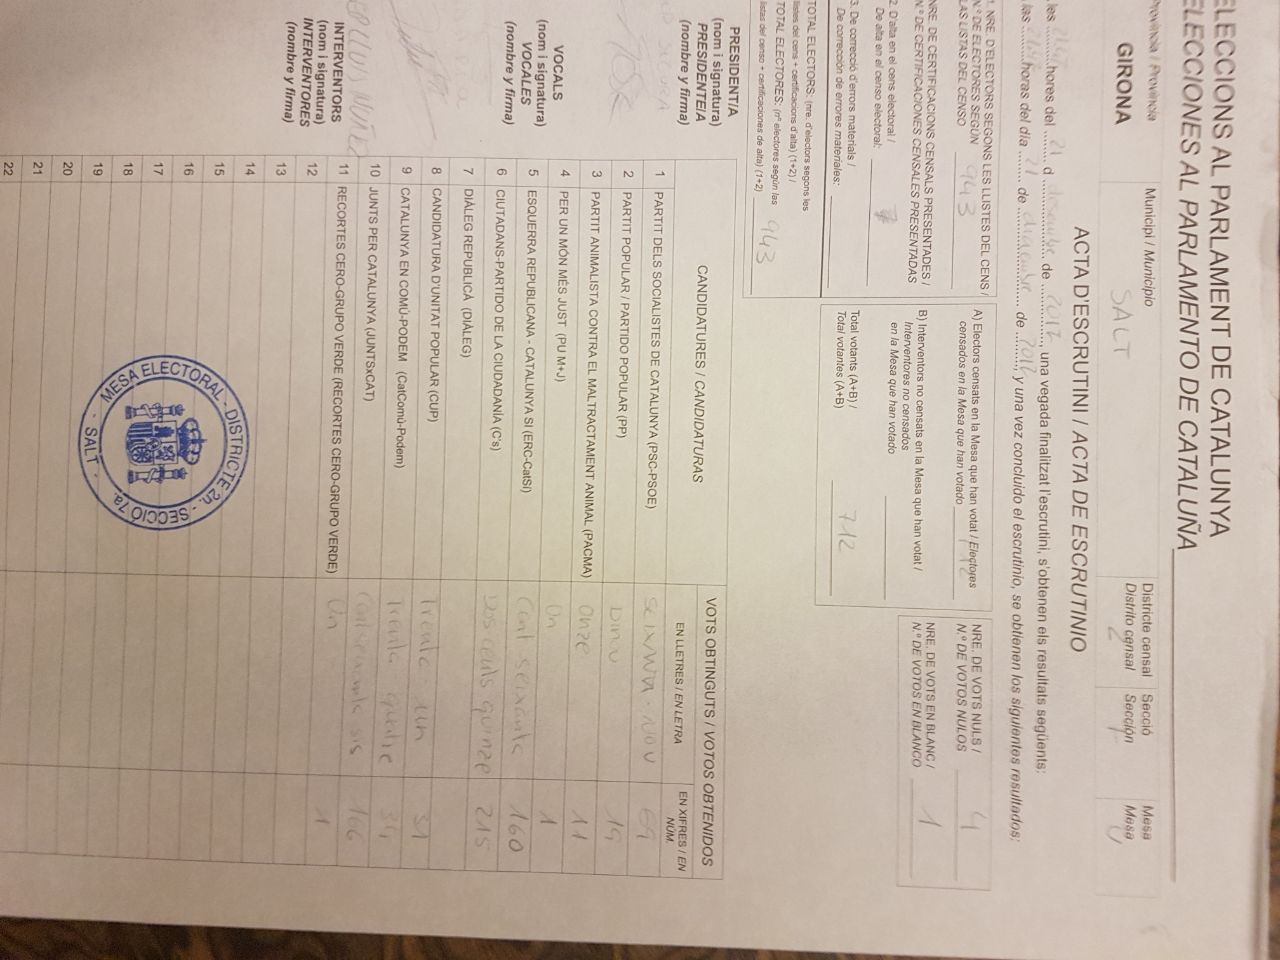 ELECCIONS AL PARLAMENT DE CATALUNYA
ELECCIONES AL PARLAMENTO DE CATALUÑA
Província / Provincia
GIRONA
Municipi / Municipio
SALT
Districte censal
Distrito censal
2
Secció
Sección
7
Mesa
Mesa
U
ACTA D'ESCRUTINI / ACTA DE ESCRUTINIO
les hores del 21 d desembre de 2017, una vegada finalitzat l'escrutini, s'obtenen els resultats següents:
las horas del día 21 de de y una vez concluido el escrutinio, se obtienen los siguientes resultados:
1. NRE. D'ELECTORS SEGONS LES LLISTES DEL CENS /
N.º DE ELECTORES SEGÚN
LAS LISTAS DEL CENSO 943
NRE. DE CERTIFICACIONS CENSALS PRESENTADES /
N.º DE CERTIFICACIONES CENSALES PRESENTADAS
2. D'alta en el cens electoral /
De alta en el censo electoral:
3. De correcció d'errors materials /
De corrección de errores materiales:
TOTAL ELECTORS: (nre. d'electors segons les
llistes del cens + certificacions d'alta) (1+2) /
TOTAL ELECTORES: (nº electores según las
listas del censo + certificaciones de alta) (1+2) 943
A) Electors censats en la Mesa que han votat / Electores
censados en la Mesa que han votado
B) Interventors no censats en la Mesa que han votat /
Interventores no censados
en la Mesa que han votado
Total votants (A+B) /
Total votantes (A+B) 712
NRE. DE VOTS NULS /
N.º DE VOTOS NULOS 4
NRE. DE VOTS EN BLANC /
N.º DE VOTOS EN BLANCO 1
PRESIDENT/A
(nom i signatura)
PRESIDENTE/A
(nombre y firma)
VOCALS
(nom i signatura)
VOCALES
(nombre y firma)
INTERVENTORS
(nom i signatura)
INTERVENTORES
(nombre y firma)
CANDIDATURES / CANDIDATURAS
VOTS OBTINGUTS / VOTOS OBTENIDOS
EN LLETRES / EN LETRA
EN XIFRES / EN
NÚM.
1 PARTIT DELS SOCIALISTES DE CATALUNYA (PSC-PSOE) seixanta-nou 69
2 PARTIT POPULAR / PARTIDO POPULAR (PP) Dinou 19
3 PARTIT ANIMALISTA CONTRA EL MALTRACTAMENT ANIMAL (PACMA) onze 11
4 PER UN MÓN MÉS JUST (PUM+J) Un 1
5 ESQUERRA REPUBLICANA - CATALUNYA SÍ (ERC-CatSí) Cent seixanta 160
6 CIUTADANS-PARTIDO DE LA CIUDADANÍA (C's) Dos cents quinze 215
7 DIÀLEG REPUBLICÀ (DIÀLEG)
8 CANDIDATURA D'UNITAT POPULAR (CUP) Trenta un 31
9 CATALUNYA EN COMÚ-PODEM (CatComú-Podem) Trenta quatre 34
10 JUNTS PER CATALUNYA (JUNTSxCAT) Cent seixanta sis 166
11 RECORTES CERO-GRUPO VERDE (RECORTES CERO-GRUPO VERDE) Un 1
12
13
14
15
16
17
18
19
20
21
22
MESA ELECTORAL - DISTRICTE 2n. - SECCIÓ 7a.
- SALT -